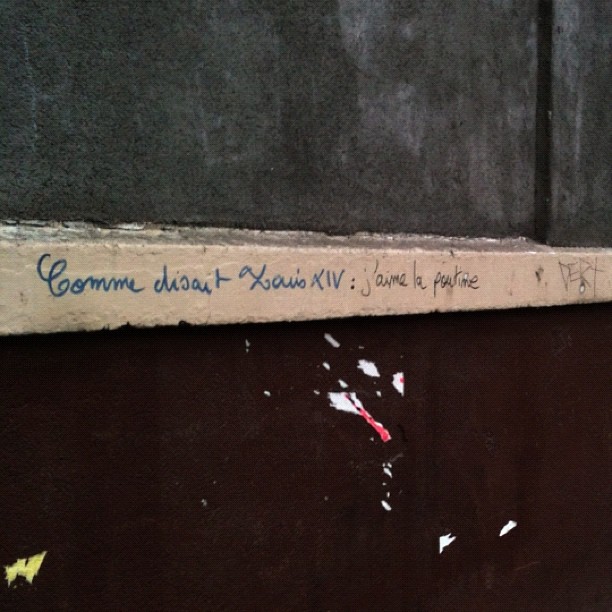 Comme disait Louis XIV : j'aime la poutine